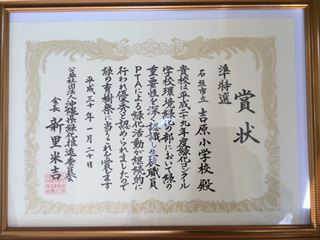 賞状
準特選
石垣市立 吉原小学校 殿
貴校は平成二十九年度緑化コンクール
学校環境緑化の部において緑の
重要性を深く認識し全校職員
PTAによる緑化活動が継続的に
行われ優秀と認められましたので
緑の育樹祭に当たりこれを賞します
平成三十年一月二十日
公益社団法人沖縄県緑化推進委員会
会長 新里米吉